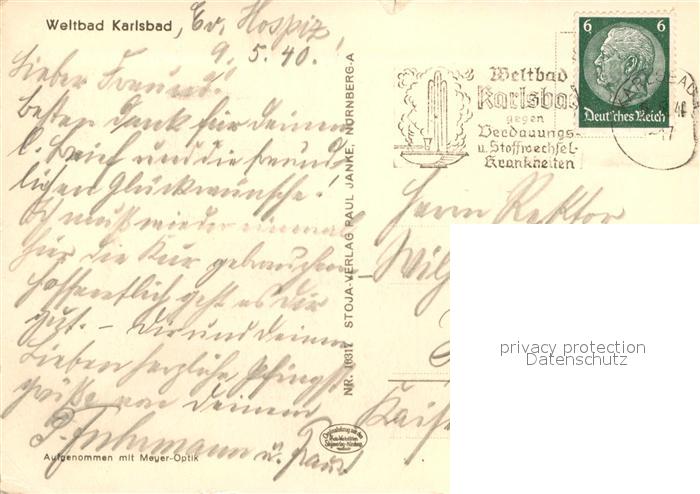 Weltbad Karlsbad, Ev. Hospiz,
9. 5. 40.
Lieber Freund!
Besten Dank für Deinen
l. Brief und die freund-
lichen Glückwünsche!
Ich muß wieder einmal
hier die Kur gebrauchen.
Hoffentlich geht es Dir
gut. – Dir und Deinen
Lieben herzliche Pfingst-
grüße von Deinem
P. Fuhrmann u. Frau
Aufgenommen mit Meyer-Optik
NR. 10317 STOJA-VERLAG PAUL JANKE, NÜRNBERG-A
Weltbad
Karlsbad
gegen
Verdauungs-
u. Stoffwechsel-
Krankheiten
6 6
Deutsches Reich
KARLSBAD
Herrn Rektor
Wilh
Kais
privacy protection
Datenschutz